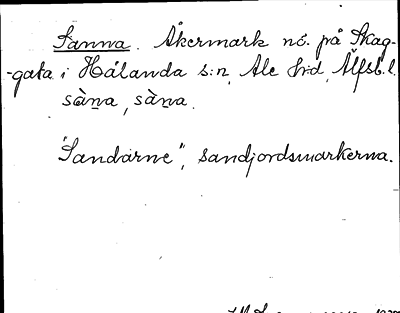 Sanna. Åkermark nö. på Skag-
-gata i Hålanda s:n, Ale h:d, Älfsb. l.
sàṉa, sàṉa.
"Sandarne", sandjordsmarkerna.